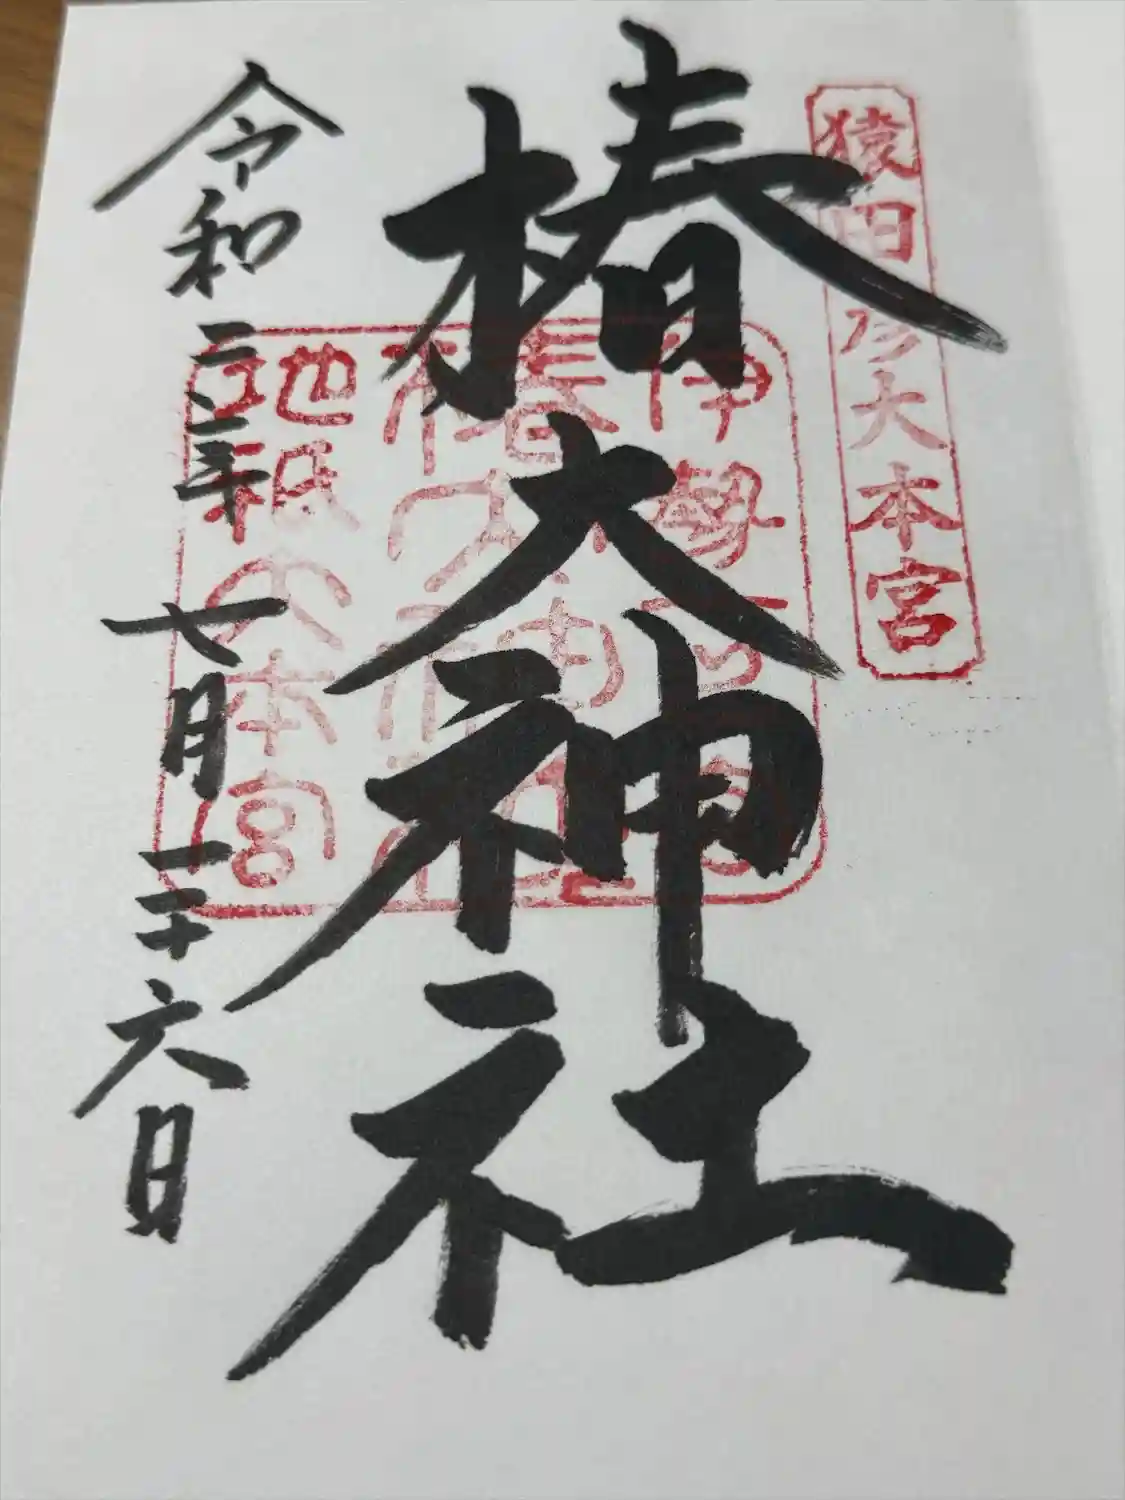 猿田彦大本宮
椿大神社
伊勢
椿大神社
地祇大本宮
令和三年七月二十六日